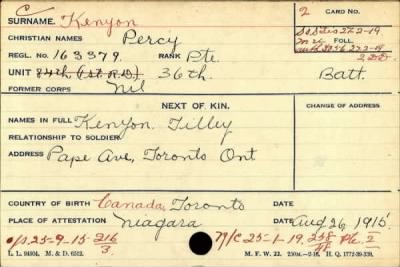 C
SURNAME. Kenyon
2 CARD NO.
CHRISTIAN NAMES Percy
FOLL.
REGL. NO. 163379. RANK Pte.
UNIT 84th (1st R.D) 36th. Batt.
FORMER CORPS nil
NEXT OF KIN. CHANGE OF ADDRESS
NAMES IN FULL Kenyon Tilley
RELATIONSHIP TO SOLDIER
ADDRESS Pape Ave, Toronto Ont
COUNTRY OF BIRTH Canada, Toronto DATE
PLACE OF ATTESTATION Niagara DATE Aug 26 1915
o/s 25-9-15 216/3 N/C 25-1-19. 258
L. L. 94304. M. & D. 6512. M. F. W. 22. H. Q. 1772-39-339.